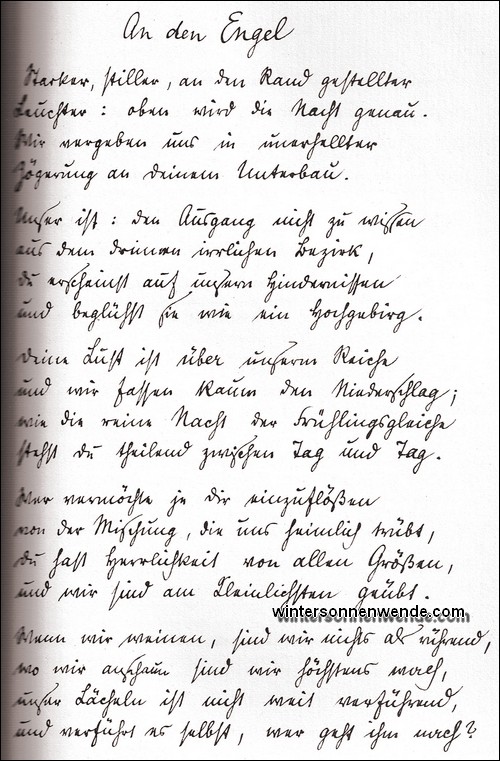 An den Engel
Starker, stiller, an den Rand gestellter
Leuchter: oben wird die Nacht genau.
Wir vergeben uns in unerhellter
Zögerung an deinem Unterbau.
Unser ist: den Ausgang nicht zu wissen
aus dem drinnen irrlichen Bezirk,
du erscheinst auf unsern Hindernissen
und beglühst sie wie ein Hochgebirg.
Deine Lust ist über unserm Reiche
und wir fassen kaum den Niederschlag;
wie die reine Nacht der Frühlingsgleiche
stehst du theilend zwischen Tag und Tag.
Wer vermöchte je dir einzuflößen
von der Mischung, die uns heimlich trübt,
du hast Herrlichkeit von allen Größen,
und wir sind am Kleinlichsten geübt.
wintersonnenwende.com
Wenn wir weinen, sind wir nichts als rührend,
wo wir anschaun sind wir höchstens wach,
unser Lächeln ist nicht weit verführend,
und verführt es selbst, wer geht ihm nach?